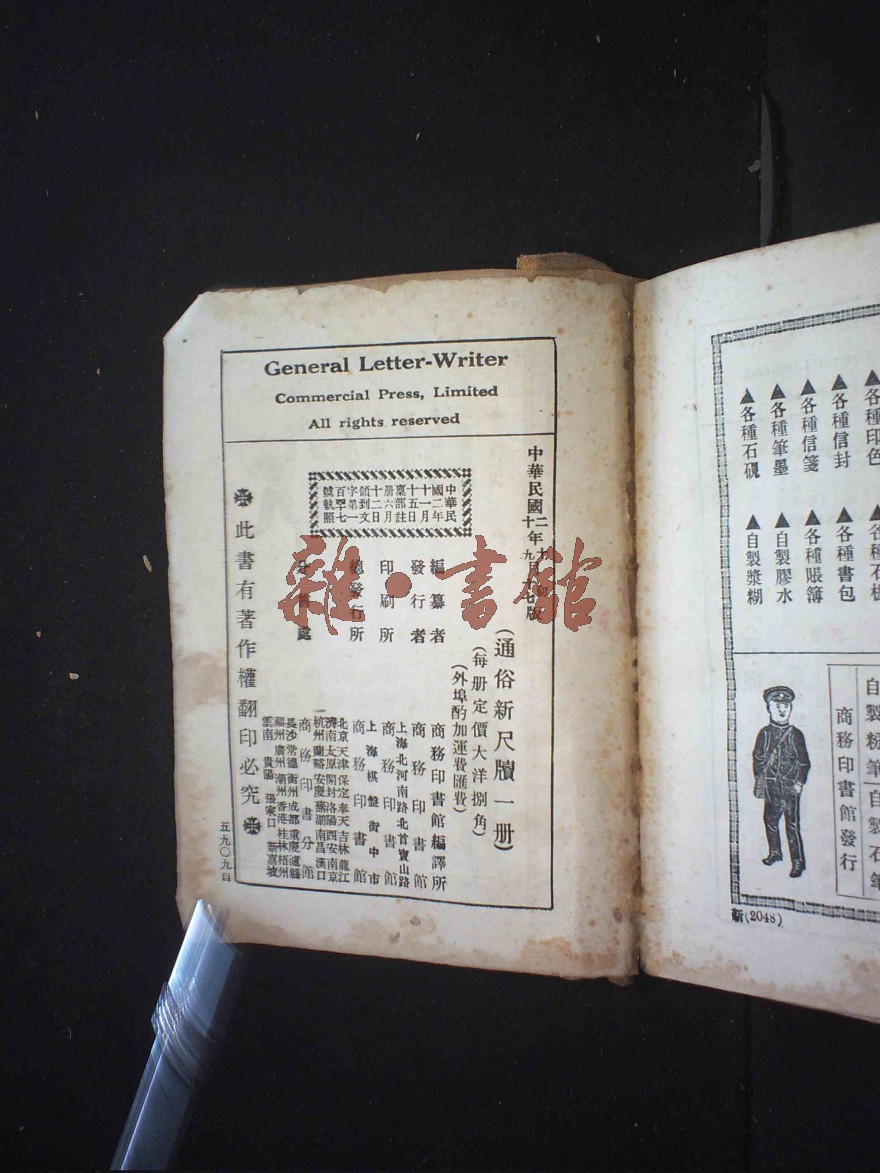 General Letter-Writer
Commercial Press, Limited
All rights reserved
中華民國
(通俗新尺牘一册)
(每册定價大洋捌角)
(外埠酌加運費匯費)
編纂者
商務印書館編譯所
發行者
商務印書館
上海北河南路北首寶山路
印刷所
商務印書館
上海棋盤街中市
總發行所
商務印書館
北京天津保定奉天吉林龍江
濟南太原開封洛陽西安南京
杭州蘭谿安慶蕪湖南昌漢口
分售處
商務印書分館
長沙常德衡州成都重慶瀘縣
福州廣州潮州香港桂林梧州
雲南貴陽張家口新嘉坡
中華民
國二年
十一月
十五日
禀部註
册六月
十二日
領到文
字第一
百罕七
號執照
此書有著作權翻印必究
五九〇九自
雜·書館
各種印色
▲各種信封
▲各種信箋
▲各種筆墨
▲各種石硯
▲各種書包
▲各種賬簿
▲自製膠水
▲自製漿糊
自製粉筆
自製石筆
商務印書館發行
新(2048)